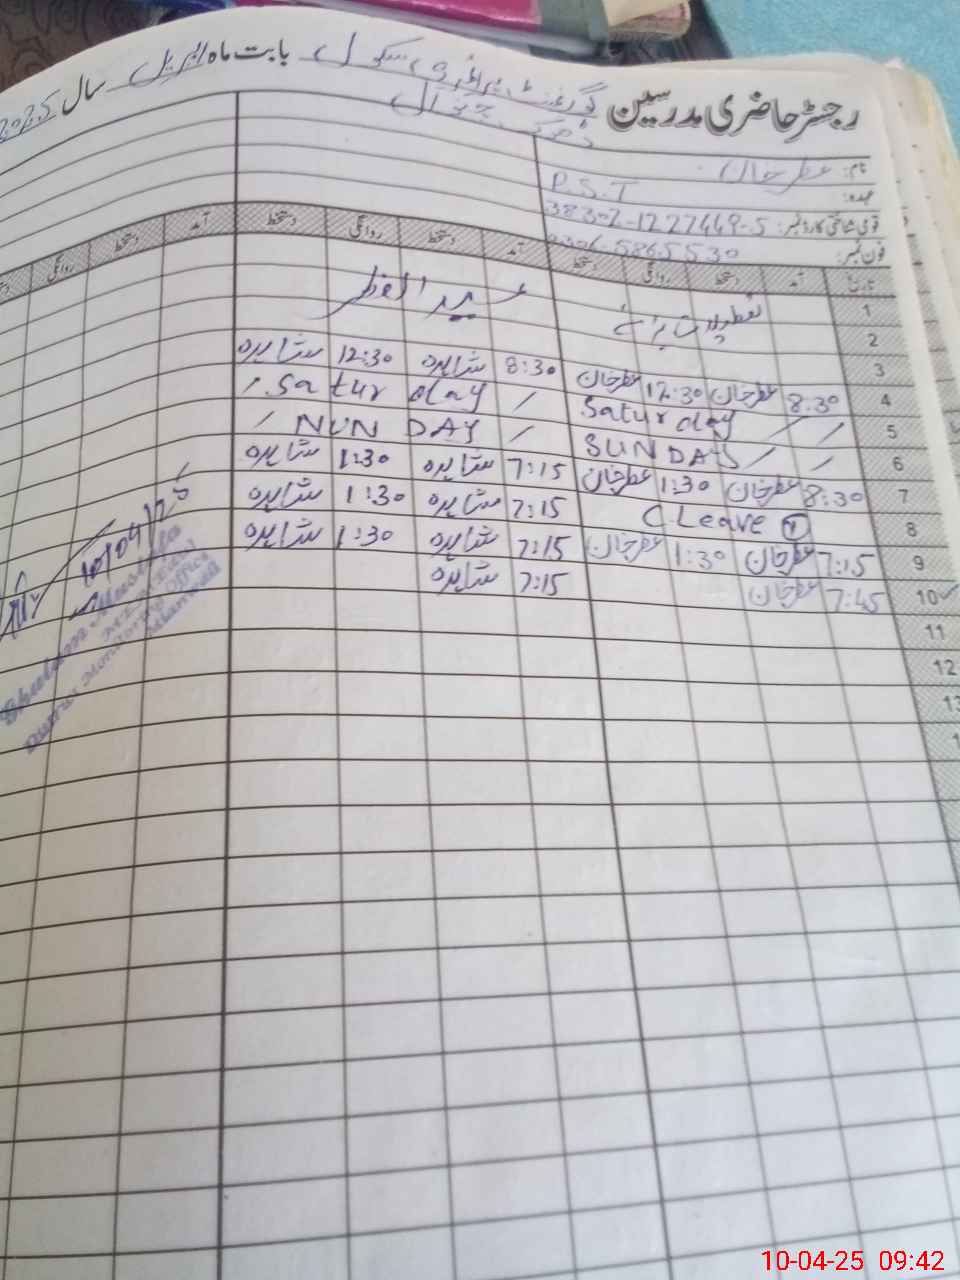 رجسٹر حاضری مدرسین گورنمنٹ پرائمری سکول بابت ماہ اپریل سال 2025
ڈھوک
نام: عطر خان
عہدہ: P.S.T
قومی شناختی کارڈ نمبر: 38302-1227449-5
فون نمبر: 0306-5865530
تاریخ آمد دستخط روانگی دستخط آمد دستخط روانگی دستخط آمد دستخط روانگی
1
2 تعطیلات برائے عید الفطر
3
4 8:30 عطر خان 12:30 عطر خان 8:30 شاہدہ 12:30 شاہدہ
5 / / Saturday / Saturday /
6 / / SUNDAY / NUNDAY /
7 8:30 عطر خان 1:30 عطر خان 7:15 شاہدہ 1:30 شاہدہ
8 C Leave 1 7:15 شاہدہ 1:30 شاہدہ
9 7:15 عطر خان 1:30 عطر خان 7:15 شاہدہ 1:30 شاہدہ
10 7:45 عطر خان 7:15 شاہدہ
11
12
13
1
10/04/25
Ghulam Mustafa
District Monitoring Officer
Mianwali
10-04-25 09:42